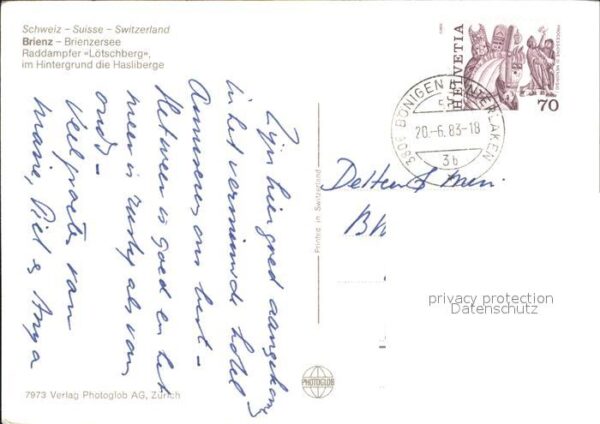 Schweiz – Suisse – Switzerland
Brienz – Brienzersee
Raddampfer «Lötschberg»,
im Hintergrund die Hasliberge
Zijn hier goed aangekomen
in het vernieuwde hotel
Amuseren ons best –
Het weer is goed en het
meer is rustig als van
ouds –
Veel groeten van
Marie, Piet & Anya
7973 Verlag Photoglob AG, Zürich
Printed in Switzerland
PHOTOGLOB
HELVETIA
70
3806 BÖNIGEN B. INTERLAKEN
20.-6.83-18
3b
privacy protection
Datenschutz